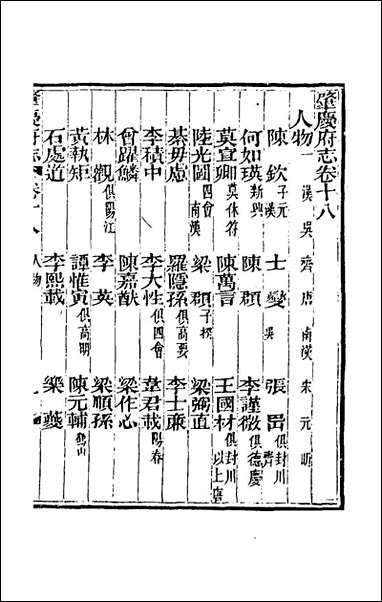 肇慶府志卷十八
人物一 漢 吳 齊 唐 南漢 宋 元 明
陳欽 子元 漢 士燮 吳 張𠷓 俱封川 齊
何如瑛 新興 陳頵 李謹微 俱德慶
莫宣卿 莫休符 陳萬言 王國材 俱封川 以上唐
陸光圖 四會 南漢 梁頵 子探 梁弼直
綦毋處 羅隱孫 俱高要 李士廉
李積中 李大性 俱四會 韋君載 陽春
曾躍鱗 陳嘉猷 梁作心
林觀 俱陽江 李英 梁順孫
黃執矩 譚惟寅 俱高明 陳元輔 鶴山
石處道 李熙載 梁䕫
肇慶府志 卷十八 人物 一